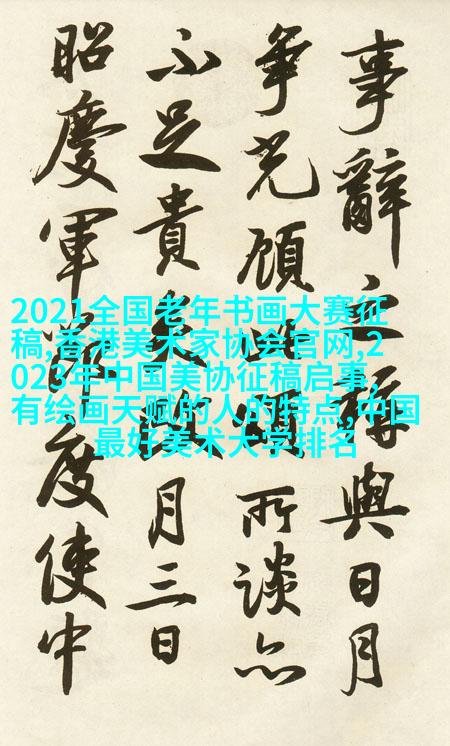 事辭之與日月
爭光顧此頌所談亦
不足貴矣月三日
昭慶軍節度使中
2021全国老年书画大赛征
稿,香港美术家协会官网,2
023年中国美协征稿启事,
有绘画天赋的人的特点,中国
最好美术大学排名